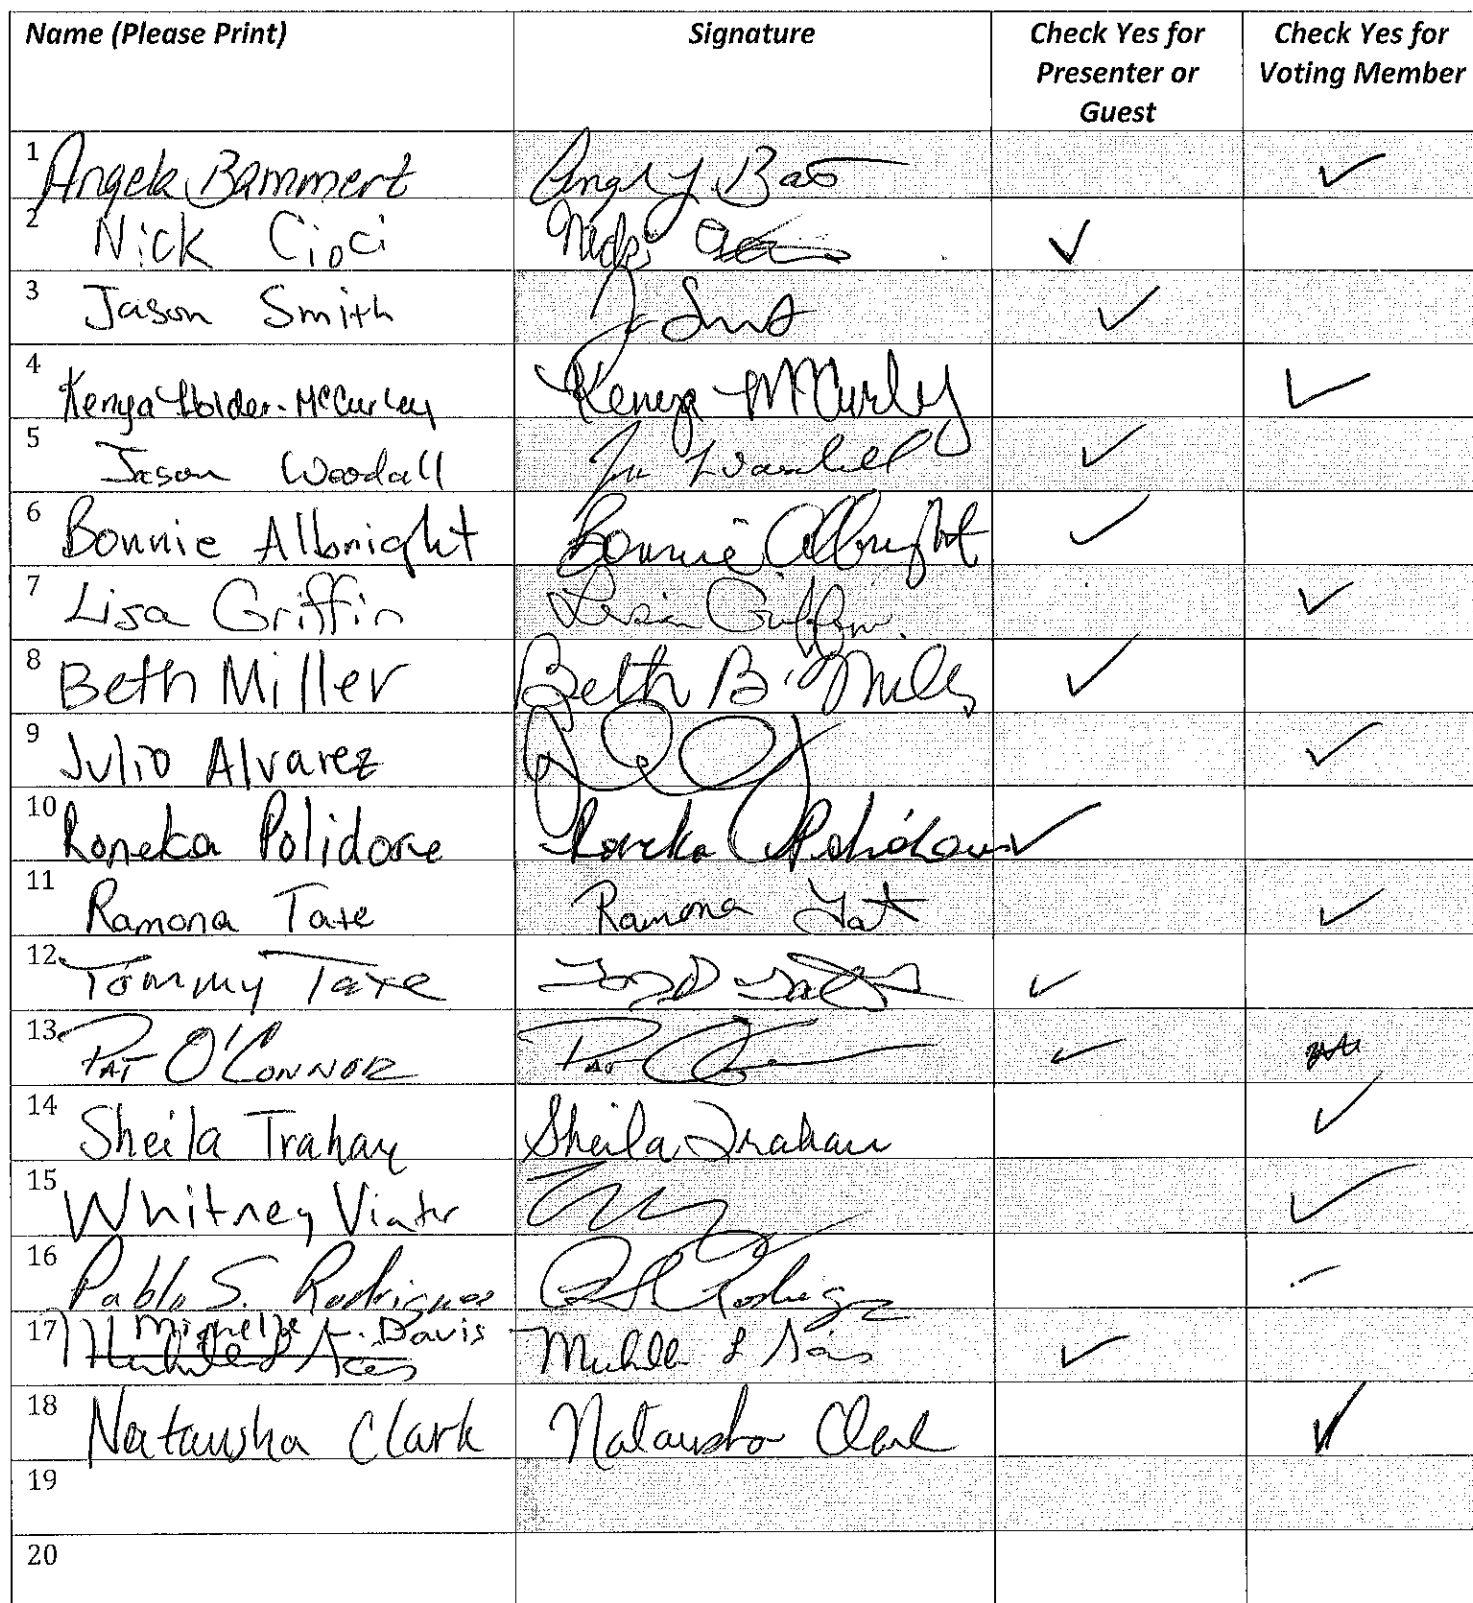 Name (Please Print) Signature Check Yes for Presenter or Guest Check Yes for Voting Member
1 Angela Bammert ✓
2 Nick Cioci ✓
3 Jason Smith J Smith ✓
4 Kenya Holder-McCurley Kenya McCurly ✓
5 Jason Woodall ✓
6 Bonnie Albright Bonnie Albright ✓
7 Lisa Griffin Lisa Griffin ✓
8 Beth Miller Beth B. Miller ✓
9 Julio Alvarez ✓
10 Roneka Polidore Roneka Polidore ✓
11 Ramona Tate Ramona Tate ✓
12 Tommy Tate ✓
13 PAT O'CONNOR PAT ✓
14 Sheila Trahan Sheila Trahan ✓
15 Whitney Viator ✓
16 Pablo S. Rodriguez
17 Michelle L. Davis Michelle L Davis ✓
18 Natausha Clark Natausha Clark ✓
19
20